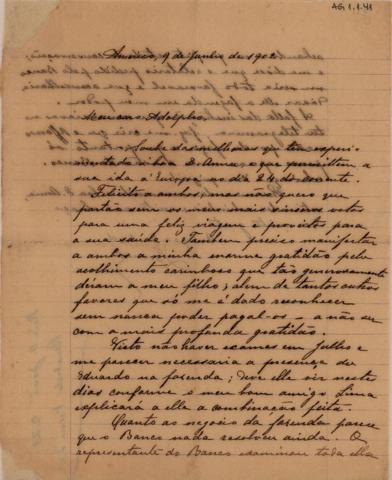 AG 1.1.41
9 de Junho de 1902
Meu caro Adolpho,
Soube das melhoras que tem experi-
mentado a boa D. Anna, e que permittem a
sua ida á Europa no dia 24 do corrente.
Felicito a ambos, mas não quero que
partão sem os meus mais sinceros votos
para uma feliz viagem e proveitos para
a sua saúde. Tambem preciso manifestar
a ambos a minha enorme gratidão pelo
acolhimento carinhoso que tão generosamente
déram a meu filho; alem de tantos outros
favores que só me é dado reconhecer
sem nunca poder pagal-os — a não ser
com a mais profunda gratidão.
Visto não haver exames em Julho e
me parecer necessaria a presença do
Eduardo na fazenda; deve elle vir nestes
dias conforme o meu bom amigo Lima
explicará a elle a combinação feita.
Quanto aos negocios da fazenda parece
que o Banco nada resolveu ainda. O
representante do Banco examinou toda ella